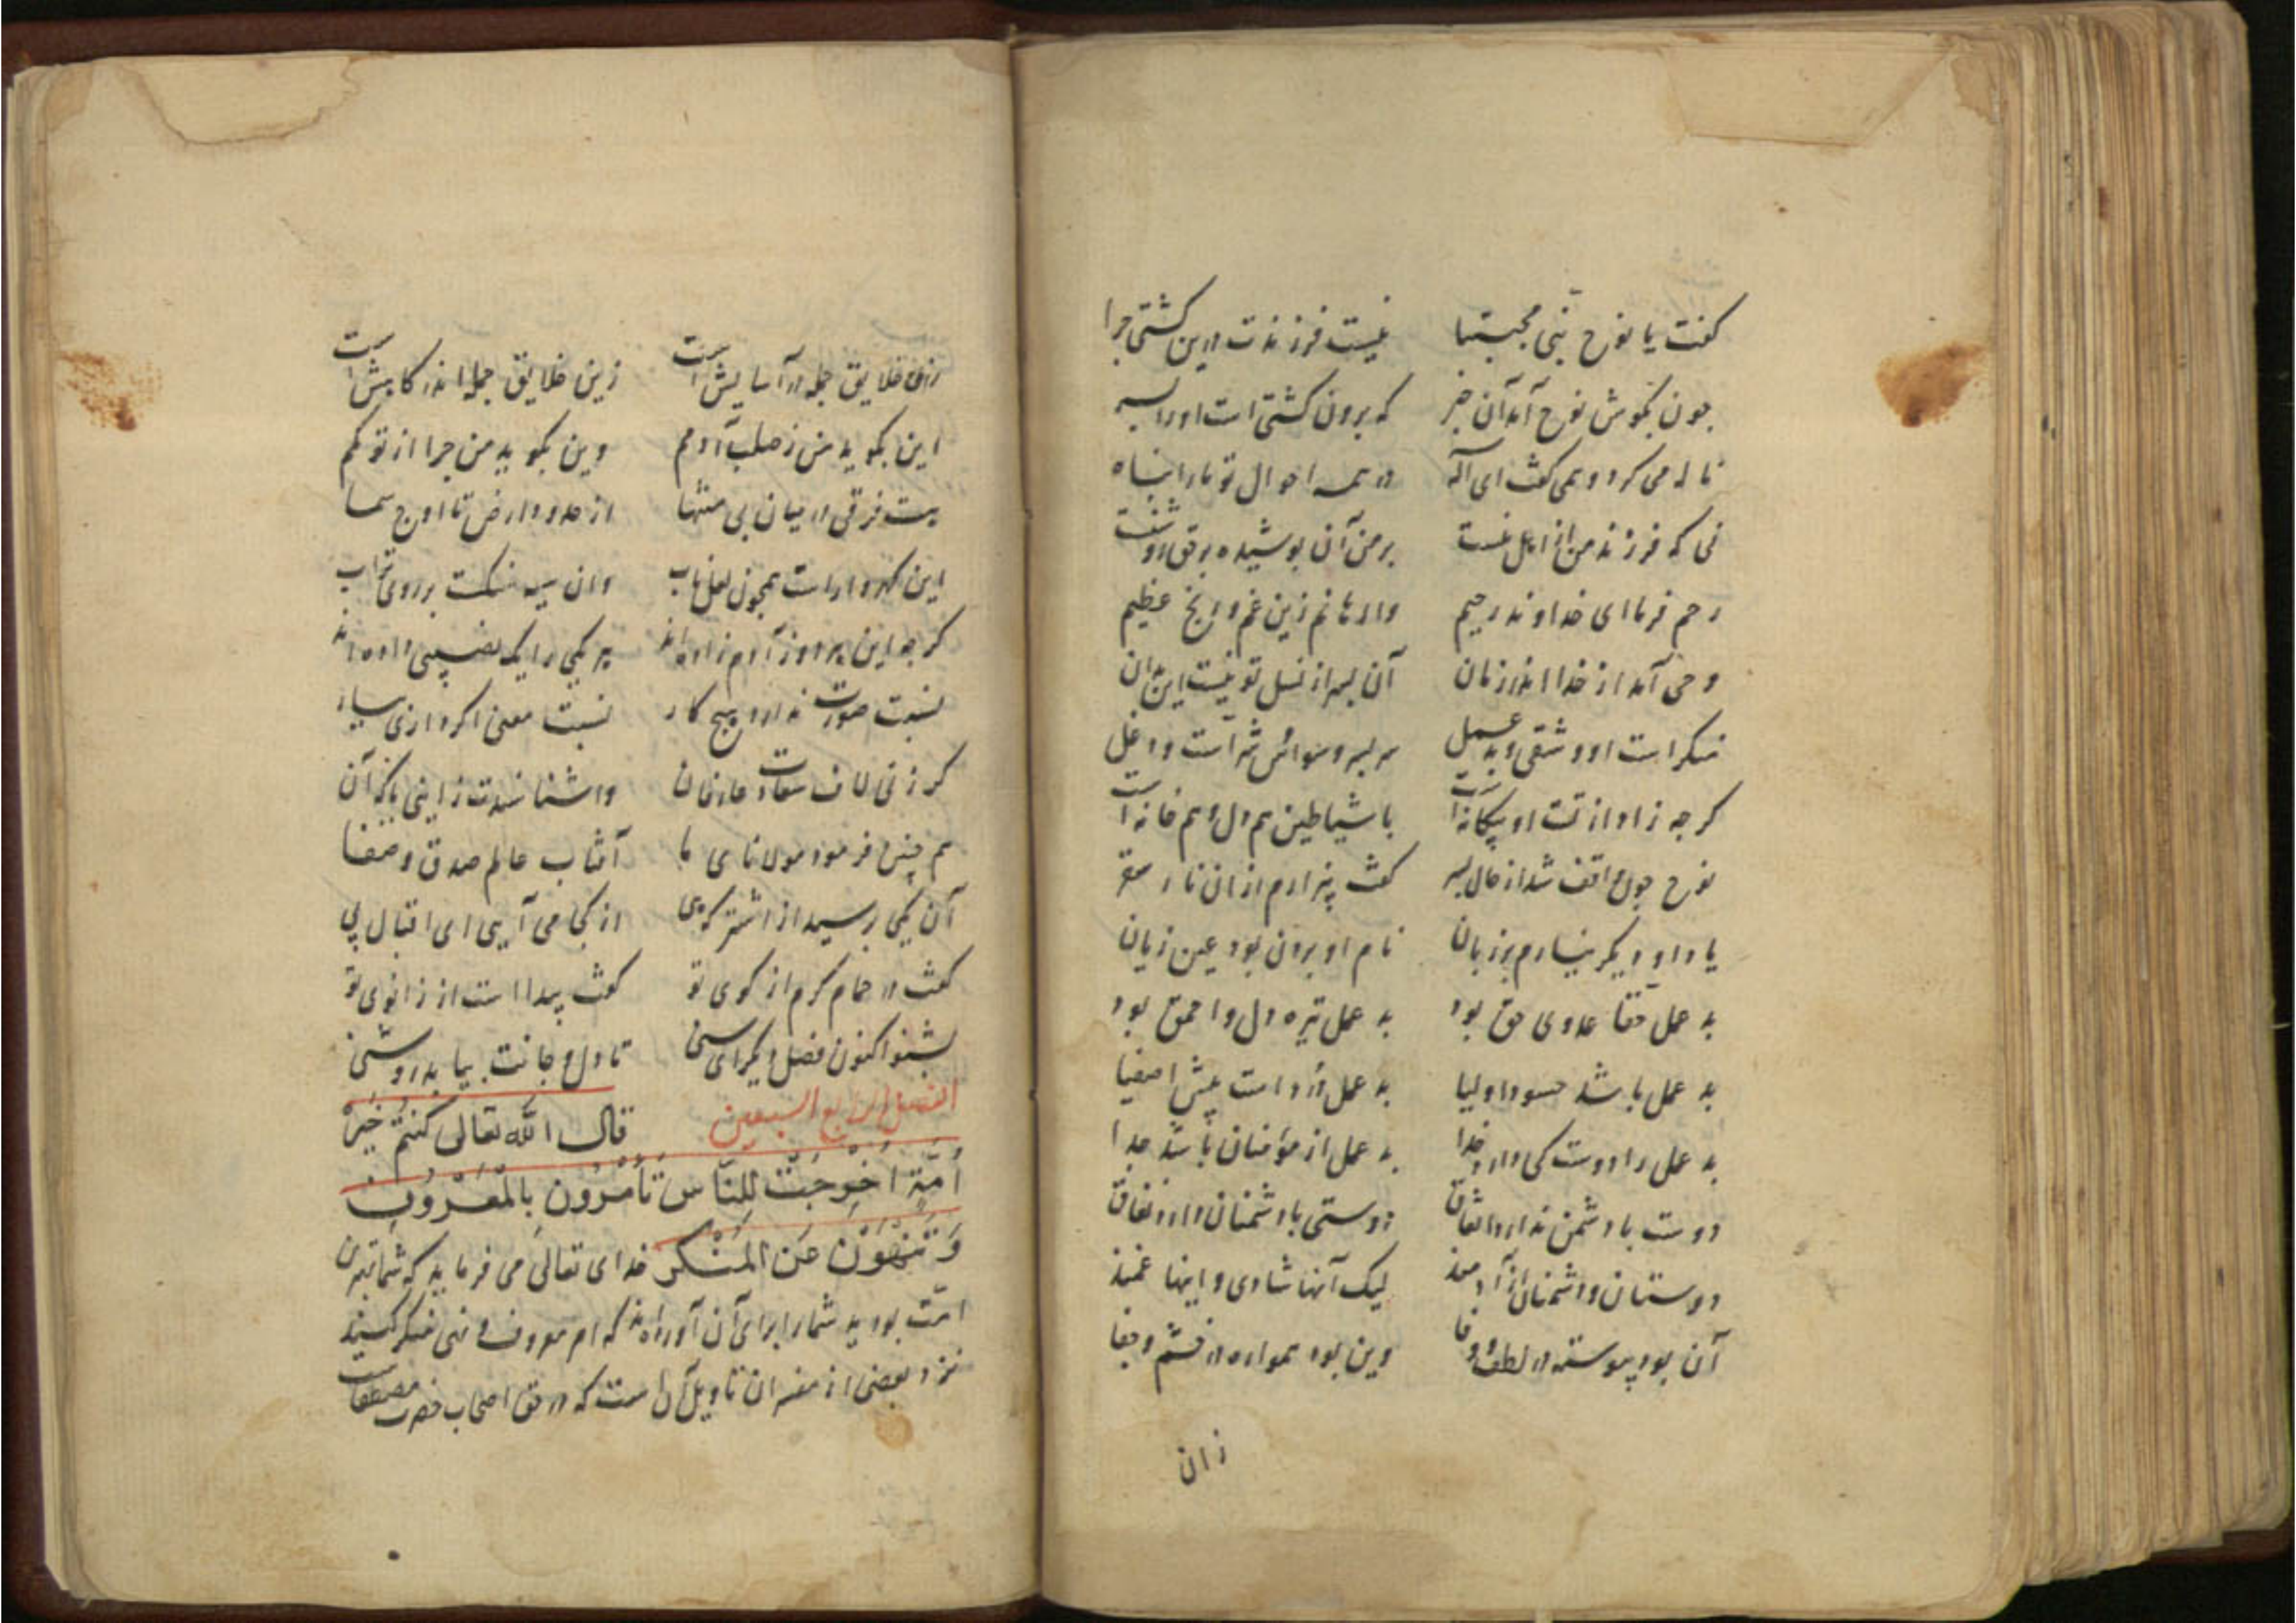 کفت یا نوح نبی مجتبا نیست فرزندت درین کشتی چرا
چون بکوش نوح آمد آن خبر که برون کشتی است او را پسر
ناله می کرد و همی کفت ای اله در همه احوال تو ما را پناه
نی که فرزند من از اهل منست بر من آن پوشیده بر حق روشنست
رحم فرما ای خداوند رحیم وارهانم زین غم و رنج عظیم
وحی آمد از خدا اندر زمان آن پسر از نسل تو نیست این بدان
منکر است او و شقی و بد عمل سر بسر وسواس شر است و دغل
کرچه زاد از تست او بیکانه است با شیاطین هم دل و هم خانه است
نوح چون واقف شد از حال پسر کفت بیزارم ازان نار سقر
یاد او دیکر نیارم بر زبان نام او بردن بود عین زیان
بد عمل حقا عدوی حق بود بد عمل تیره دل و احمق بود
بد عمل باشد حسود اولیا بد عمل درداست پیش اصفیا
بد عمل را دوست کی دارد خدا بد عمل از مؤمنان باشد جدا
دوست با دشمن ندارد اتفاق دوستی با دشمنان دارد نفاق
دوستان و دشمنان از آدمند لیک آنها شادی و اینها غمند
آن بود پیوسته در لطف و وفا وین بود همواره در خشم و جفا
زان
زان خلایق جمله در آسایش است زین خلایق جمله اندر کاهش است
این بکوید من ز صلب آدمم وین بکوید من چرا از تو کمم
هست فرقی در میان بی منتها از حدود ارض تا اوج سما
این کهر وار است همچون لعل ناب وان سیه سنکست بر روی تراب
کرچه این هر دو ز آدم زاده اند هر یکی را یک نصیبی داده اند
نسبت صورت ندارد هیچ کار نسبت معنی اکر داری بیار
کر زنی لاف سعادت عارفان
هم چنین فرمود مولانای ما آفتاب عالم صدق و صفا
آن یکی پرسید از اشتر که هی از کجا می آیی ای اقبال پی
کفت در حمام کرم از کوی تو کفت پیدا است از زانوی تو
بشنو اکنون فصل دیکر ای سنی تا دل و جانت بیابد روشنی
الفصل الرابع السبعین قال الله تعالی کُنتُم خَیْرَ
اُمَّةٍ اُخْرِجَتْ لِلنَّاسِ تَأْمُرُونَ بِالْمَعْرُوفِ
وَ تَنْهَوْنَ عَنِ الْمُنْکَرِ خدای تعالی می فرماید که شما بهترین
امّت بودید شما را برای آن آورده اند که امر معروف و نهی منکر کنید
نزد بعضی از مفسران تاویل آن است که در حق اصحاب حضرت مصطفاست